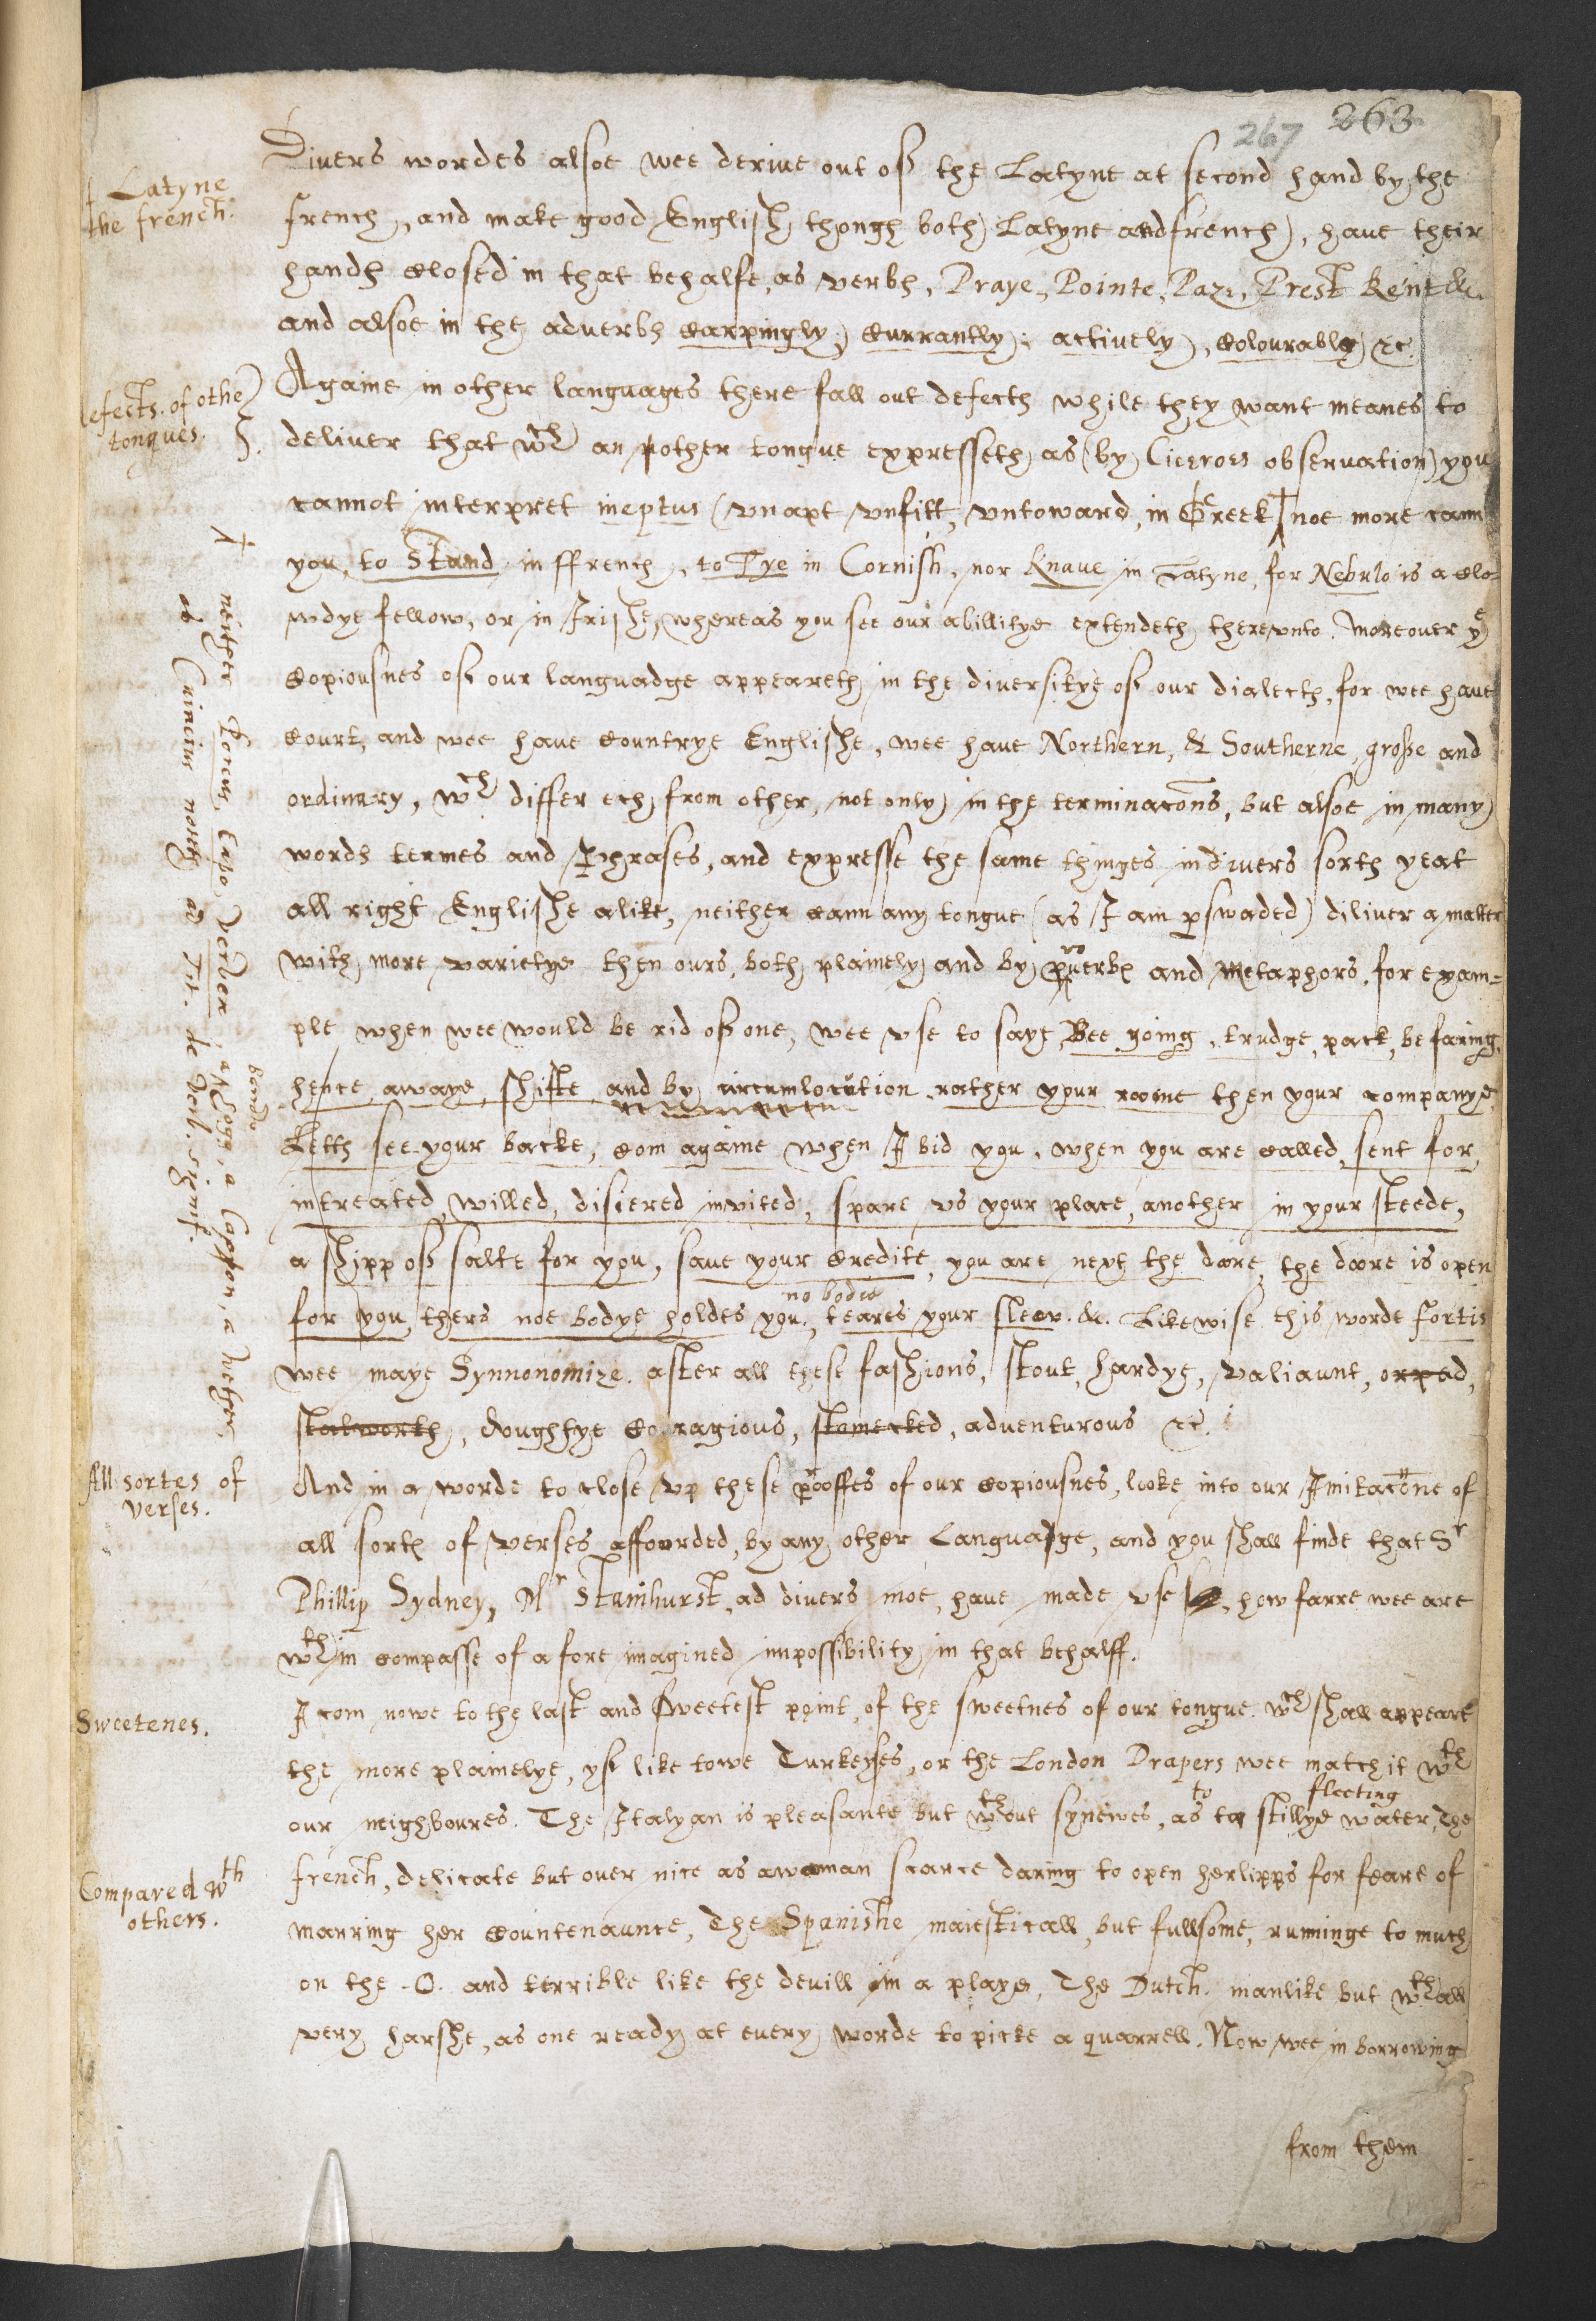 263
267
Divers wordes alsoe wee derive out of the Latyne at second hand by the
french, and make good English, though both Latyne and french, have their
handes closed in that behalfe, as verbes, Praye, Pointe, Paze, Prest Rent &c.
and alsoe in the adverbes carpingly, currantly, actively, colourably &c.
Againe in other languages there fall out defectes while they want meanes to
deliver that wch an other tongue expresseth, as (by Ciceroes observation) you
cannot interpret ineptus (vnapt vnfitt, vntoward, in Greek noe more cann
you, to Stand in ffrench, to Tye in Cornish, nor Knave in Latyne, for Nebulo is a clo-
wdye fellow, or in Irishe, whereas you see our abillitye extendeth therevnto. Moreover ye
copiousnes of our languadge appeareth in the diversitye of our dialectes, for wee have
court, and wee have countrye Englishe, wee have Northern, & Southerne, grosse and
ordinary, wch differ ech from other, not only in the terminacons, but alsoe in many
wordes termes and phrases, and expresse the same thinges in divers sortes yeat
all right Englishe alike, neither cann any tongue (as I am pswaded) diliver a matter
with more varietye then ours, both plainely and by proverbes and Metaphors, for exam=
ple when wee would be rid of one, wee vse to saye, Bee going, trudge, pack, be faring,
hence, awaye, shifte, and by circumlocution, rather your roome then your companye,
Letts see your backe, com againe when I bid you, when you are called, sent for,
intreated, willed, disiered invited, spare vs your place, another in your steede,
a shipp of salte for you, save your credite, you are next the doore, the doore is open
for you, thers noe bodye holdes you, no bodie teares your sleev. &c. Likewise this worde fortis
wee maye Synnonomize after all these fashions, stout, hardye, valiaunt, orped,
stalworth, doughtye couragious, stomecked, adventurous &c.
And in a worde to close vp these prooffes of our copiousnes, looke into our Imitacone of
all sortes of verses affourded, by any other Languadge, and you shall finde that Sr
Phillip Sydney, Mr Stanihurst, ad divers moe, have made vse, how farre wee are
wthin compasse of a fore imagined impossibility in that behalff.
I com nowe to the last and sweetest point, of the sweetnes of our tongue. wch shall appeare
the more plainelye, yf like towe Turkeyses, or the London Drapers wee match it wth
our neighboures. The Italyan is pleasante but wthout synewes, as to stillye fleeting water, The
french, delicate but over nice as a woman scarce daring to open her lipps for feare of
marring her countenaunce, The Spanishe maiesticall, but fullsome, runninge to much
on the .O. and terrible like the devill in a playe, The Dutch, manlike but wthall
very harshe, as one ready at every worde to picke a quarrell. Now wee in borrowing
from them
Latyne
the french.
efects. of othe
tongues.
neither Porcus, Capo, Vervex, a Hogg, a Cappon, a Wether
ad Tit. de Verb. signif.
All sortes of
verses.
Sweetenes.
Compared wth
others.